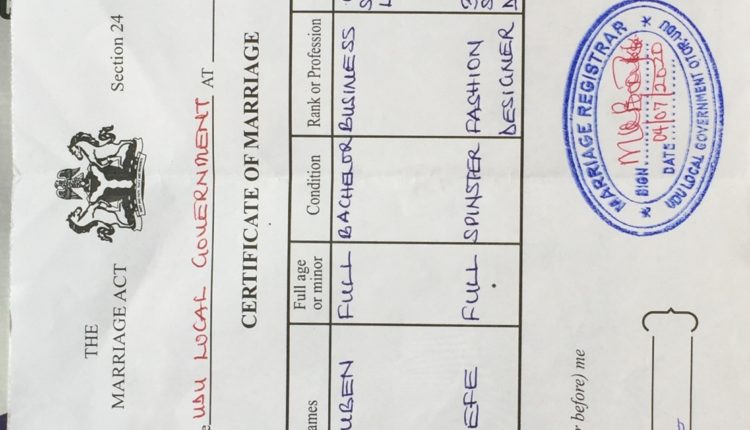 THE
MARRIAGE ACT Section 24
UDU LOCAL GOVERNMENT AT
CERTIFICATE OF MARRIAGE
ames Full age or minor Condition Rank or Profession
UBEN FULL BACHELOR BUSINESS
EFE FULL SPINSTER FASHION
DESIGNER
MARRIAGE REGISTRAR
SIGN
DATE 04/07/2020
UDU LOCAL GOVERNMENT OTOR-UDU
r before) me